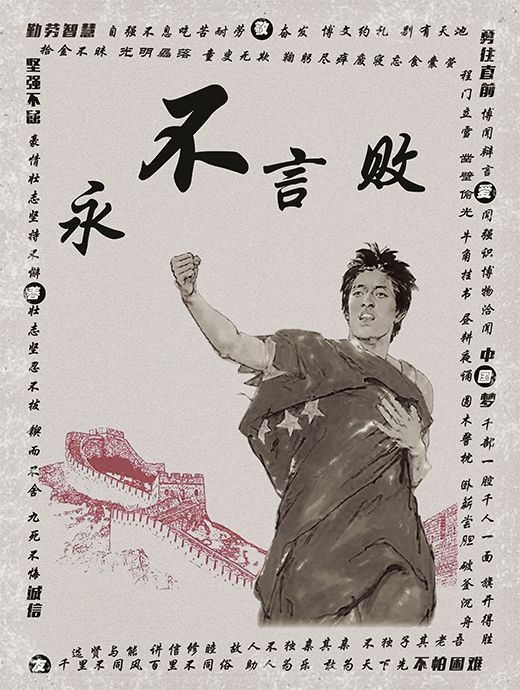 勤劳智慧 自强不息吃苦耐劳 敬 奋发 博文约礼 别有天池
拾金不昧 光明磊落 童叟无欺 鞠躬尽瘁废寝忘食囊萤
永不言败
坚强不屈 豪情壮志坚持不懈 善 壮志坚忍不拔 锲而不舍 九死不悔 诚信
勇往直前 博闻辩言 爱 闻强识博物洽闻 中国梦 千部一腔千人一面 旗开得胜
程门立雪 凿壁偷光 牛角挂书 昼耕夜诵 圆木警枕 卧薪尝胆 破釜沉舟
选贤与能 讲信修睦 故人不独亲其亲 不独子其老吾
友 千里不同风 百里不同俗 助人为乐 敢为天下先 不怕困难